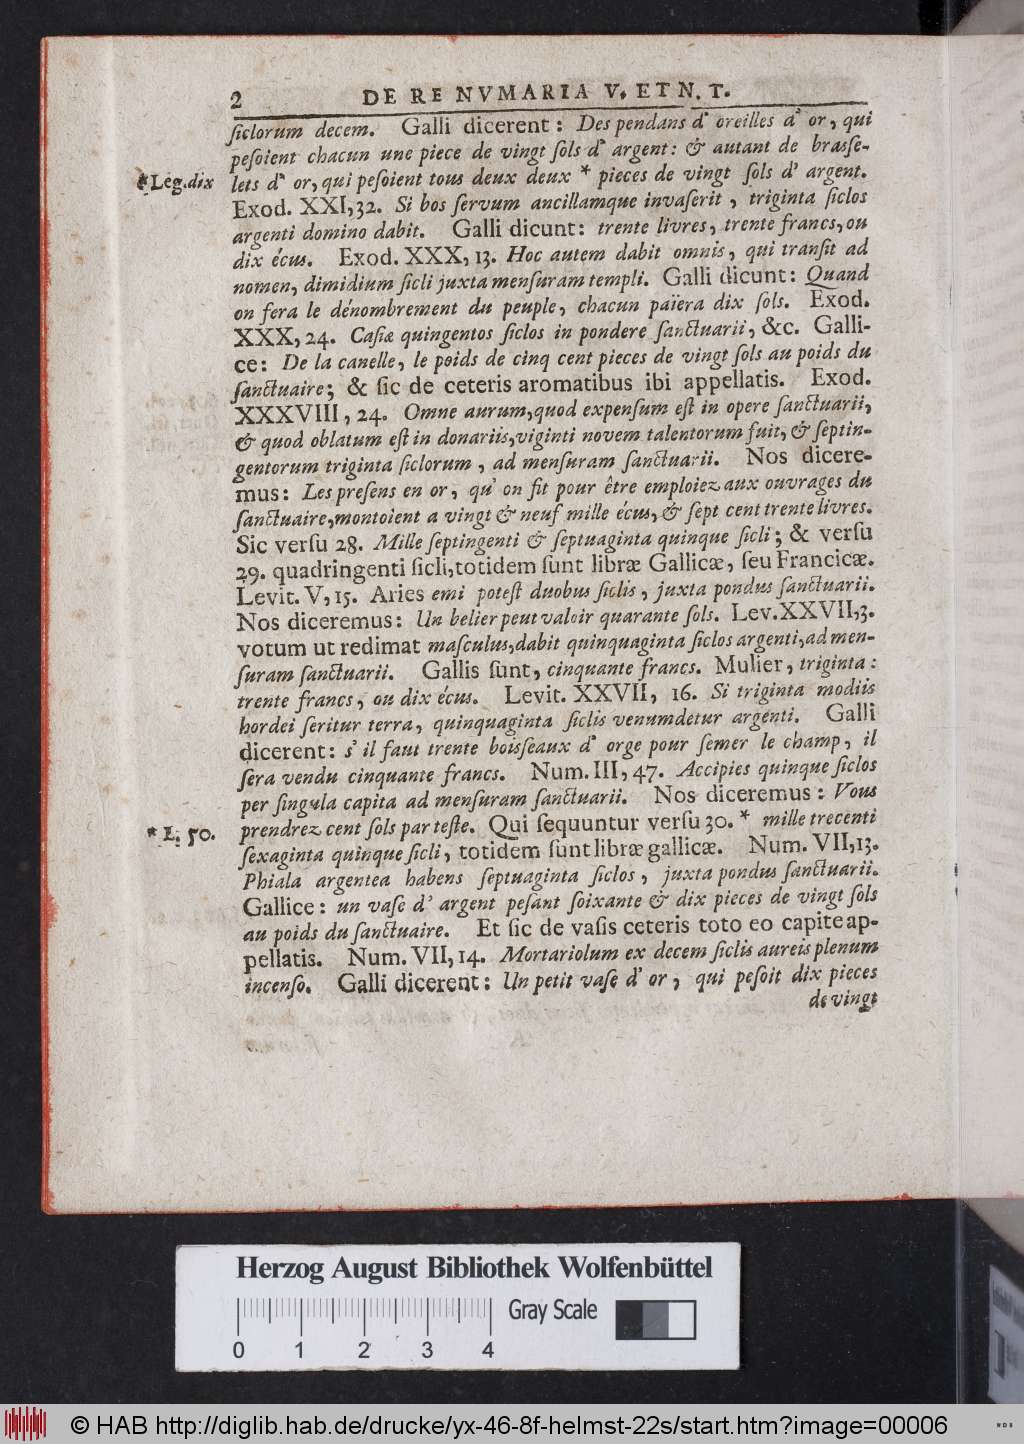 2 DE RE NVMARIA V. ET N. T.
ſiclorum decem. Galli dicerent: Des pendans d' oreilles d' or, qui
peſoient chacun une piece de vingt ſols d' argent: & autant de braſſe-
* Leg. dix lets d' or, qui peſoient tous deux deux * pieces de vingt ſols d' argent.
Exod. XXI, 32. Si bos ſervum ancillamque invaſerit, triginta ſiclos
argenti domino dabit. Galli dicunt: trente livres, trente francs, ou
dix écus. Exod. XXX, 13. Hoc autem dabit omnis, qui tranſit ad
nomen, dimidium ſicli juxta menſuram templi. Galli dicunt: Quand
on fera le dénombrement du peuple, chacun païera dix ſols. Exod.
XXX, 24. Caſiæ quingentos ſiclos in pondere ſanctuarii, &c. Galli-
ce: De la canelle, le poids de cinq cent pieces de vingt ſols au poids du
ſanctuaire; & ſic de ceteris aromatibus ibi appellatis. Exod.
XXXVIII, 24. Omne aurum, quod expenſum eſt in opere ſanctuarii,
& quod oblatum eſt in donariis, viginti novem talentorum fuit, & ſeptin-
gentorum triginta ſiclorum, ad menſuram ſanctuarii. Nos dicere-
mus: Les preſens en or, qu' on fit pour être emploiez aux ouvrages du
ſanctuaire, montoient a vingt & neuf mille écus, & ſept cent trente livres.
Sic verſu 28. Mille ſeptingenti & ſeptuaginta quinque ſicli; & verſu
29. quadringenti ſicli, totidem ſunt libræ Gallicæ, ſeu Francicæ.
Levit. V, 15. Aries emi poteſt duobus ſiclis, juxta pondus ſanctuarii.
Nos diceremus: Un belier peut valoir quarante ſols. Lev. XXVII, 3.
votum ut redimat maſculus, dabit quinquaginta ſiclos argenti, ad men-
ſuram ſanctuarii. Gallis ſunt, cinquante francs. Mulier, triginta:
trente francs, ou dix écus. Levit. XXVII, 16. Si triginta modiis
hordei ſeritur terra, quinquaginta ſiclis venumdetur argenti. Galli
dicerent: s' il faut trente boiſſeaux d' orge pour ſemer le champ, il
ſera vendu cinquante francs. Num. III, 47. Accipies quinque ſiclos
per ſingula capita ad menſuram ſanctuarii. Nos diceremus: Vous
* L. 50. prendrez cent ſols par teſte. Qui ſequuntur verſu 30. * mille trecenti
ſexaginta quinque ſicli, totidem ſunt libræ gallicæ. Num. VII, 13.
Phiala argentea habens ſeptuaginta ſiclos, juxta pondus ſanctuarii.
Gallice: un vaſe d' argent peſant ſoixante & dix pieces de vingt ſols
au poids du ſanctuaire. Et ſic de vaſis ceteris toto eo capite ap-
pellatis. Num. VII, 14. Mortariolum ex decem ſiclis aureis plenum
incenſo. Galli dicerent: Un petit vaſe d' or, qui peſoit dix pieces
de vingt
Herzog August Bibliothek Wolfenbüttel
Gray Scale
0 1 2 3 4
© HAB http://diglib.hab.de/drucke/yx-46-8f-helmst-22s/start.htm?image=00006